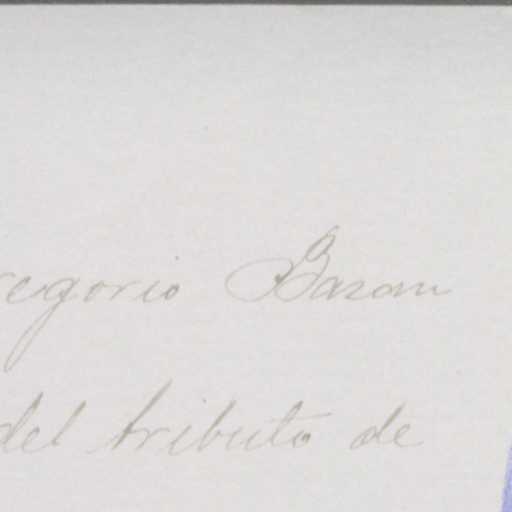 regorio Bazan
del tributo de